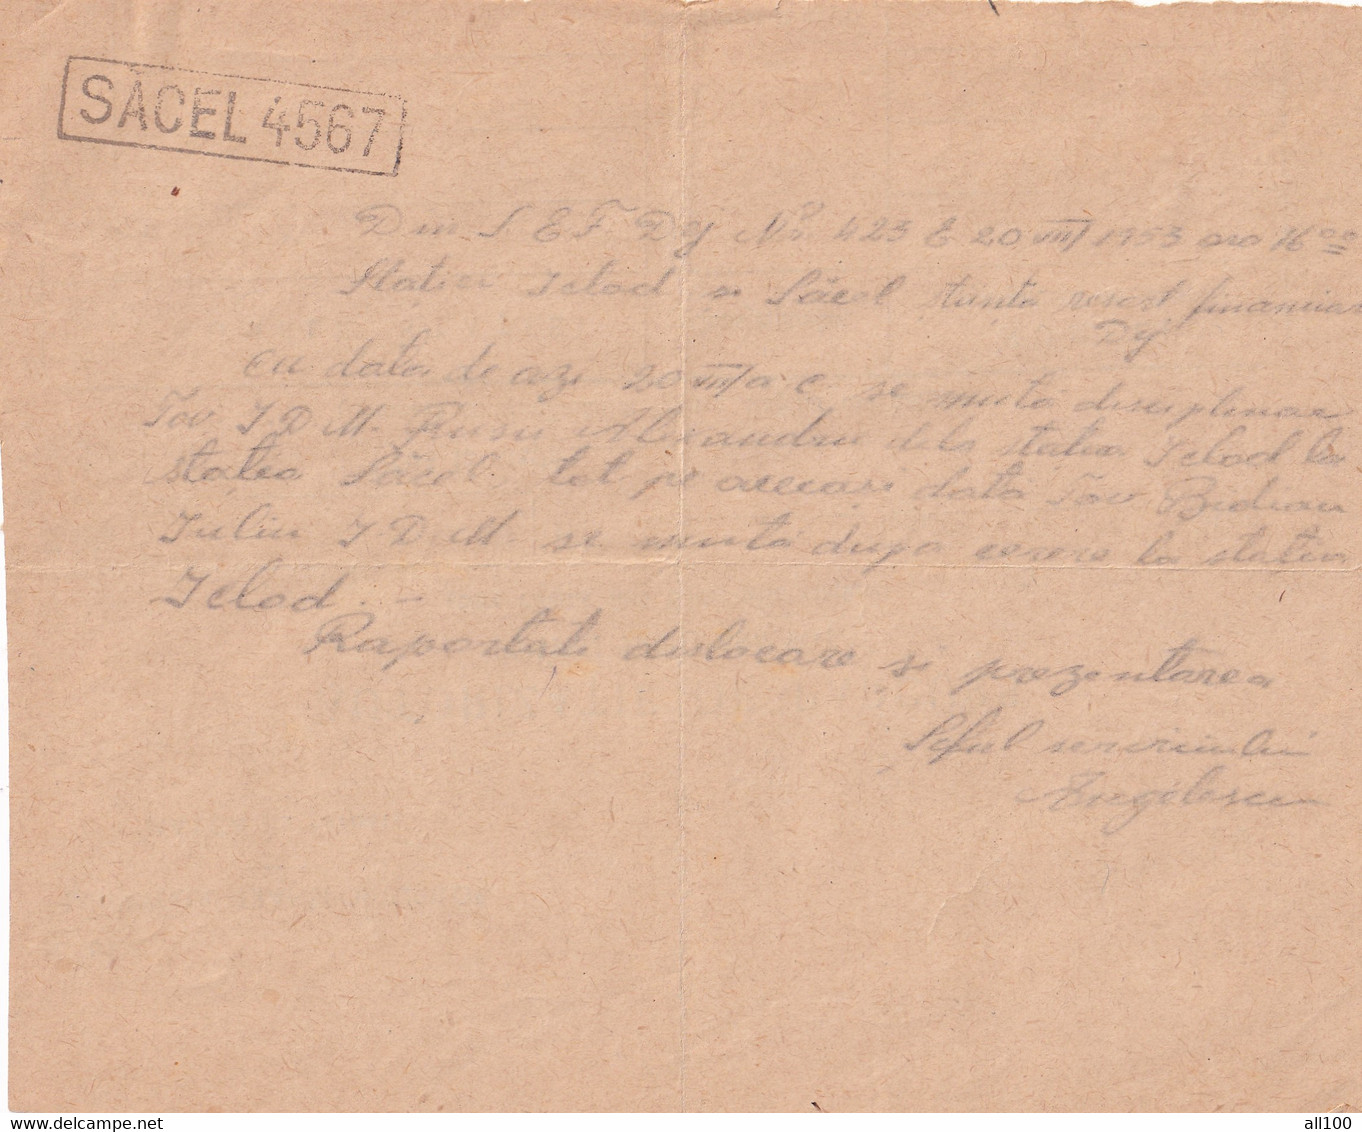 SĂCEL 4567
Din S E F Dej No 423 E 20 VIII 1953 ora 16 oo
Statiei Iclod si Săcel stiinta resort financiar
Dej
cu data de azi 20 VIII a c se muta disciplinar
Tov I D M Rusu Alexandru dela statia Iclod la
statia Săcel tot pe aceeasi data Tov
Iuliu I D M se mută dupa cerere la statia
Iclod.-
Raportati dislocare si prezentarea
Seful serviciului
Angelescu
delcampe.net
all100